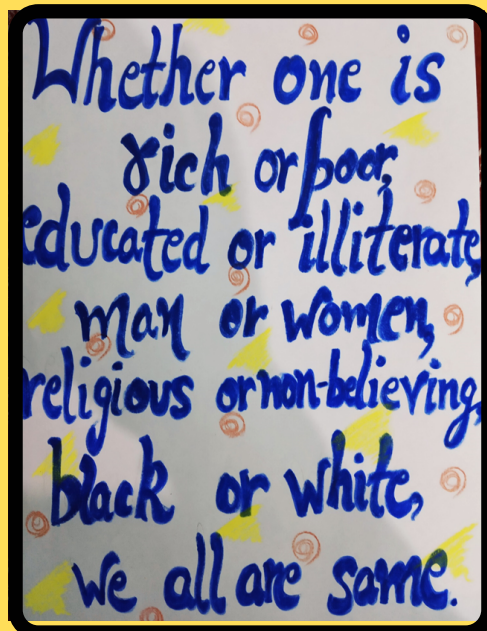 Whether one is
rich or poor,
educated or illiterate,
man or women,
religious or non-believing,
black or white,
we all are same.